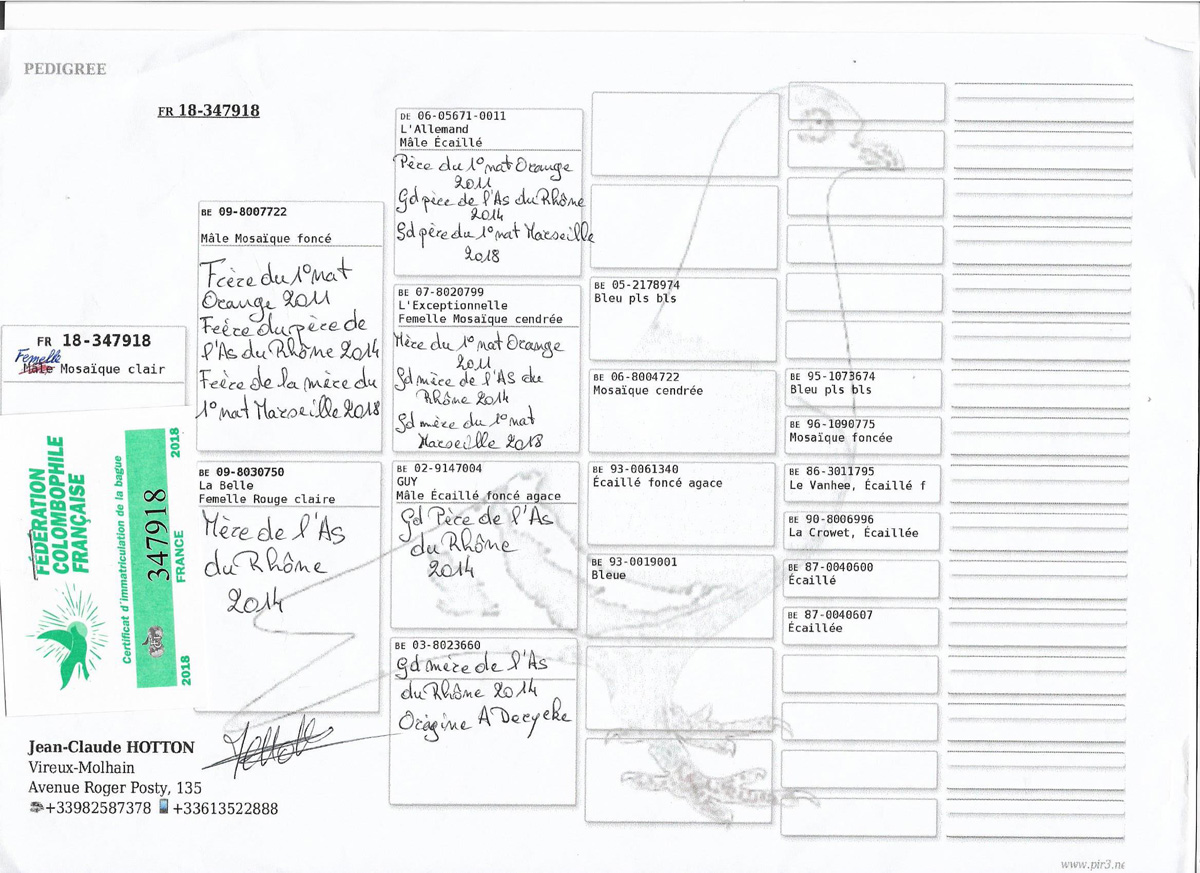 PEDIGREE
FR 18-347918
FR 18-347918
Femelle
Mâle Mosaïque clair
FÉDÉRATION
COLOMBOPHILE
FRANÇAISE
Certificat d'immatriculation de la bague
2018
347918
FRANCE
2018
Jean-Claude HOTTON
Vireux-Molhain
Avenue Roger Posty, 135
+33982587378 +33613522888
BE 09-8007722
Mâle Mosaïque foncé
Frère du 1° nat
Orange 2011
Frère du père de
l'As du Rhône 2014
Frère de la mère du
1° nat Marseille 2018
BE 09-8030750
La Belle
Femelle Rouge claire
Mère de l'As
du Rhône
2014
DE 06-05671-0011
L'Allemand
Mâle Écaillé
Père du 1° nat Orange
2011
Gd père de l'As du Rhône
2014
Gd père du 1° nat Marseille
2018
BE 07-8020799
L'Exceptionnelle
Femelle Mosaïque cendrée
Mère du 1° nat Orange
2011
Gd mère de l'As du
Rhône 2014
Gd mère du 1° nat
Marseille 2018
BE 02-9147004
GUY
Mâle Écaillé foncé agace
Gd Père de l'As
du Rhône
2014
BE 03-8023660
Gd mère de l'As
du Rhône 2014
Origine A Decyeke
BE 05-2178974
Bleu pls bls
BE 06-8004722
Mosaïque cendrée
BE 93-0061340
Écaillé foncé agace
BE 93-0019001
Bleue
BE 95-1073674
Bleu pls bls
BE 96-1090775
Mosaïque foncée
BE 86-3011795
Le Vanhee, Écaillé f
BE 90-8006996
La Crowet, Écaillée
BE 87-0040600
Écaillé
BE 87-0040607
Écaillée
www.pir3.ne